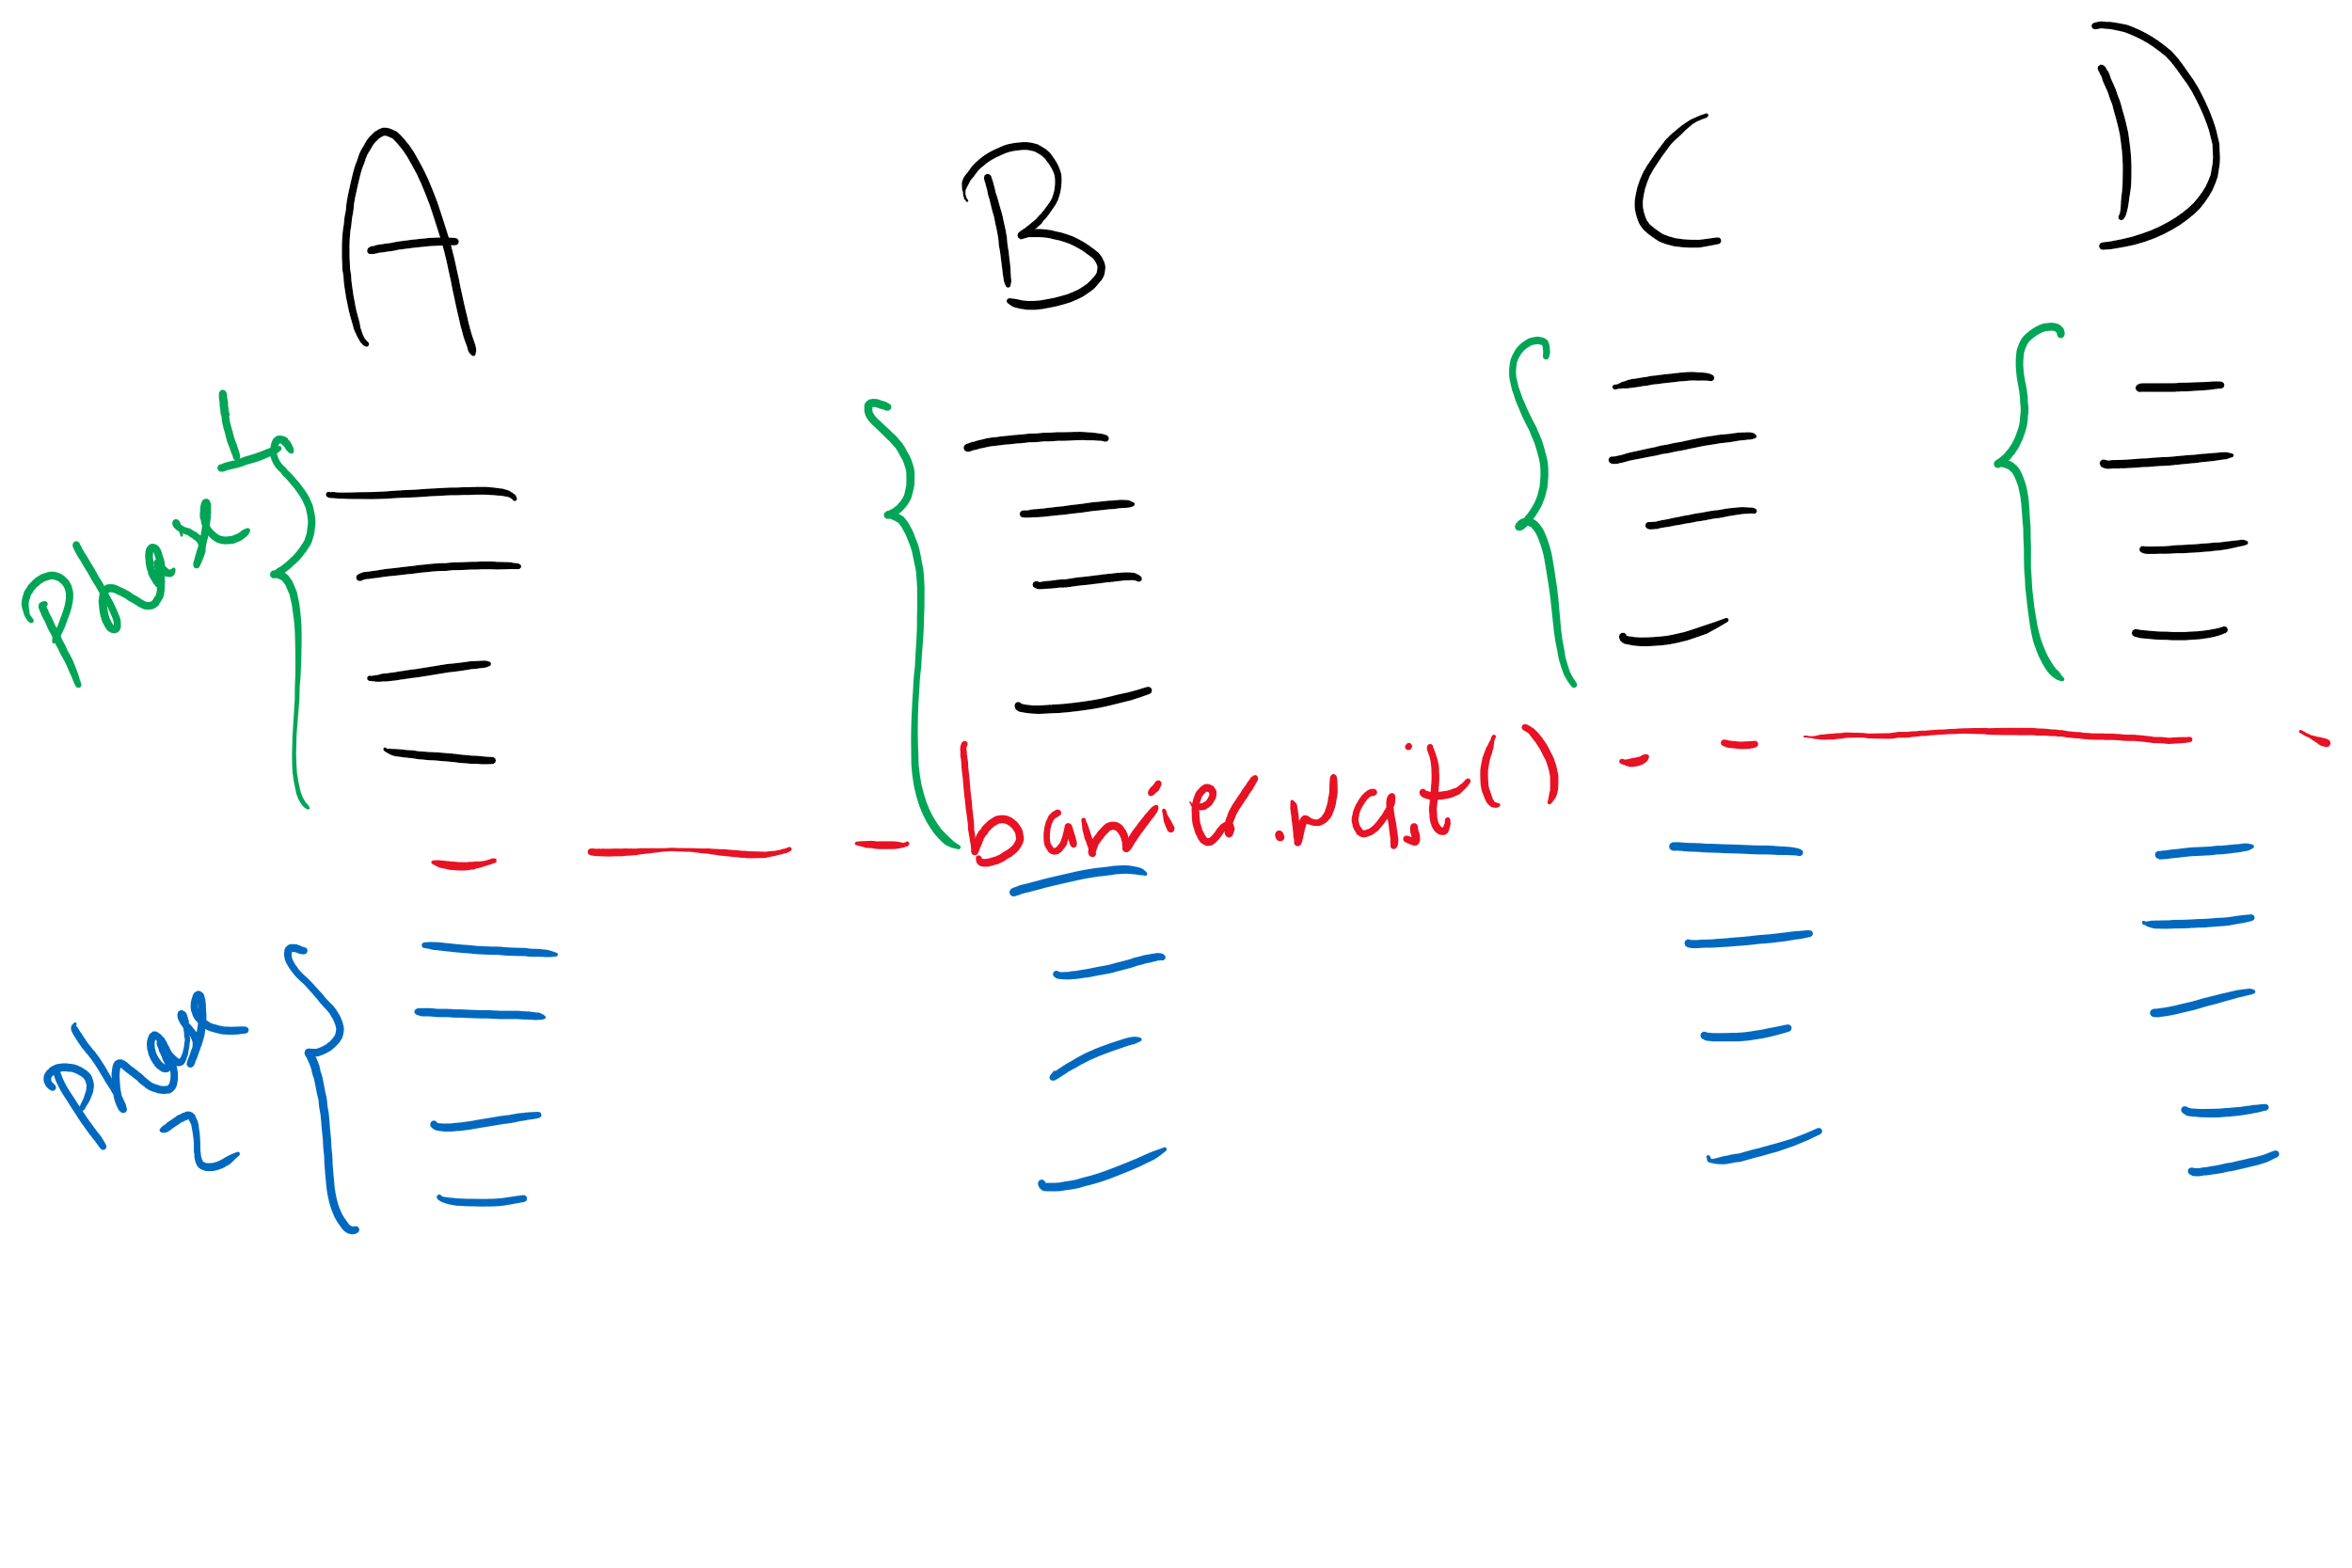 A B C D
Phase 1
barrier.wait()
Phase 2